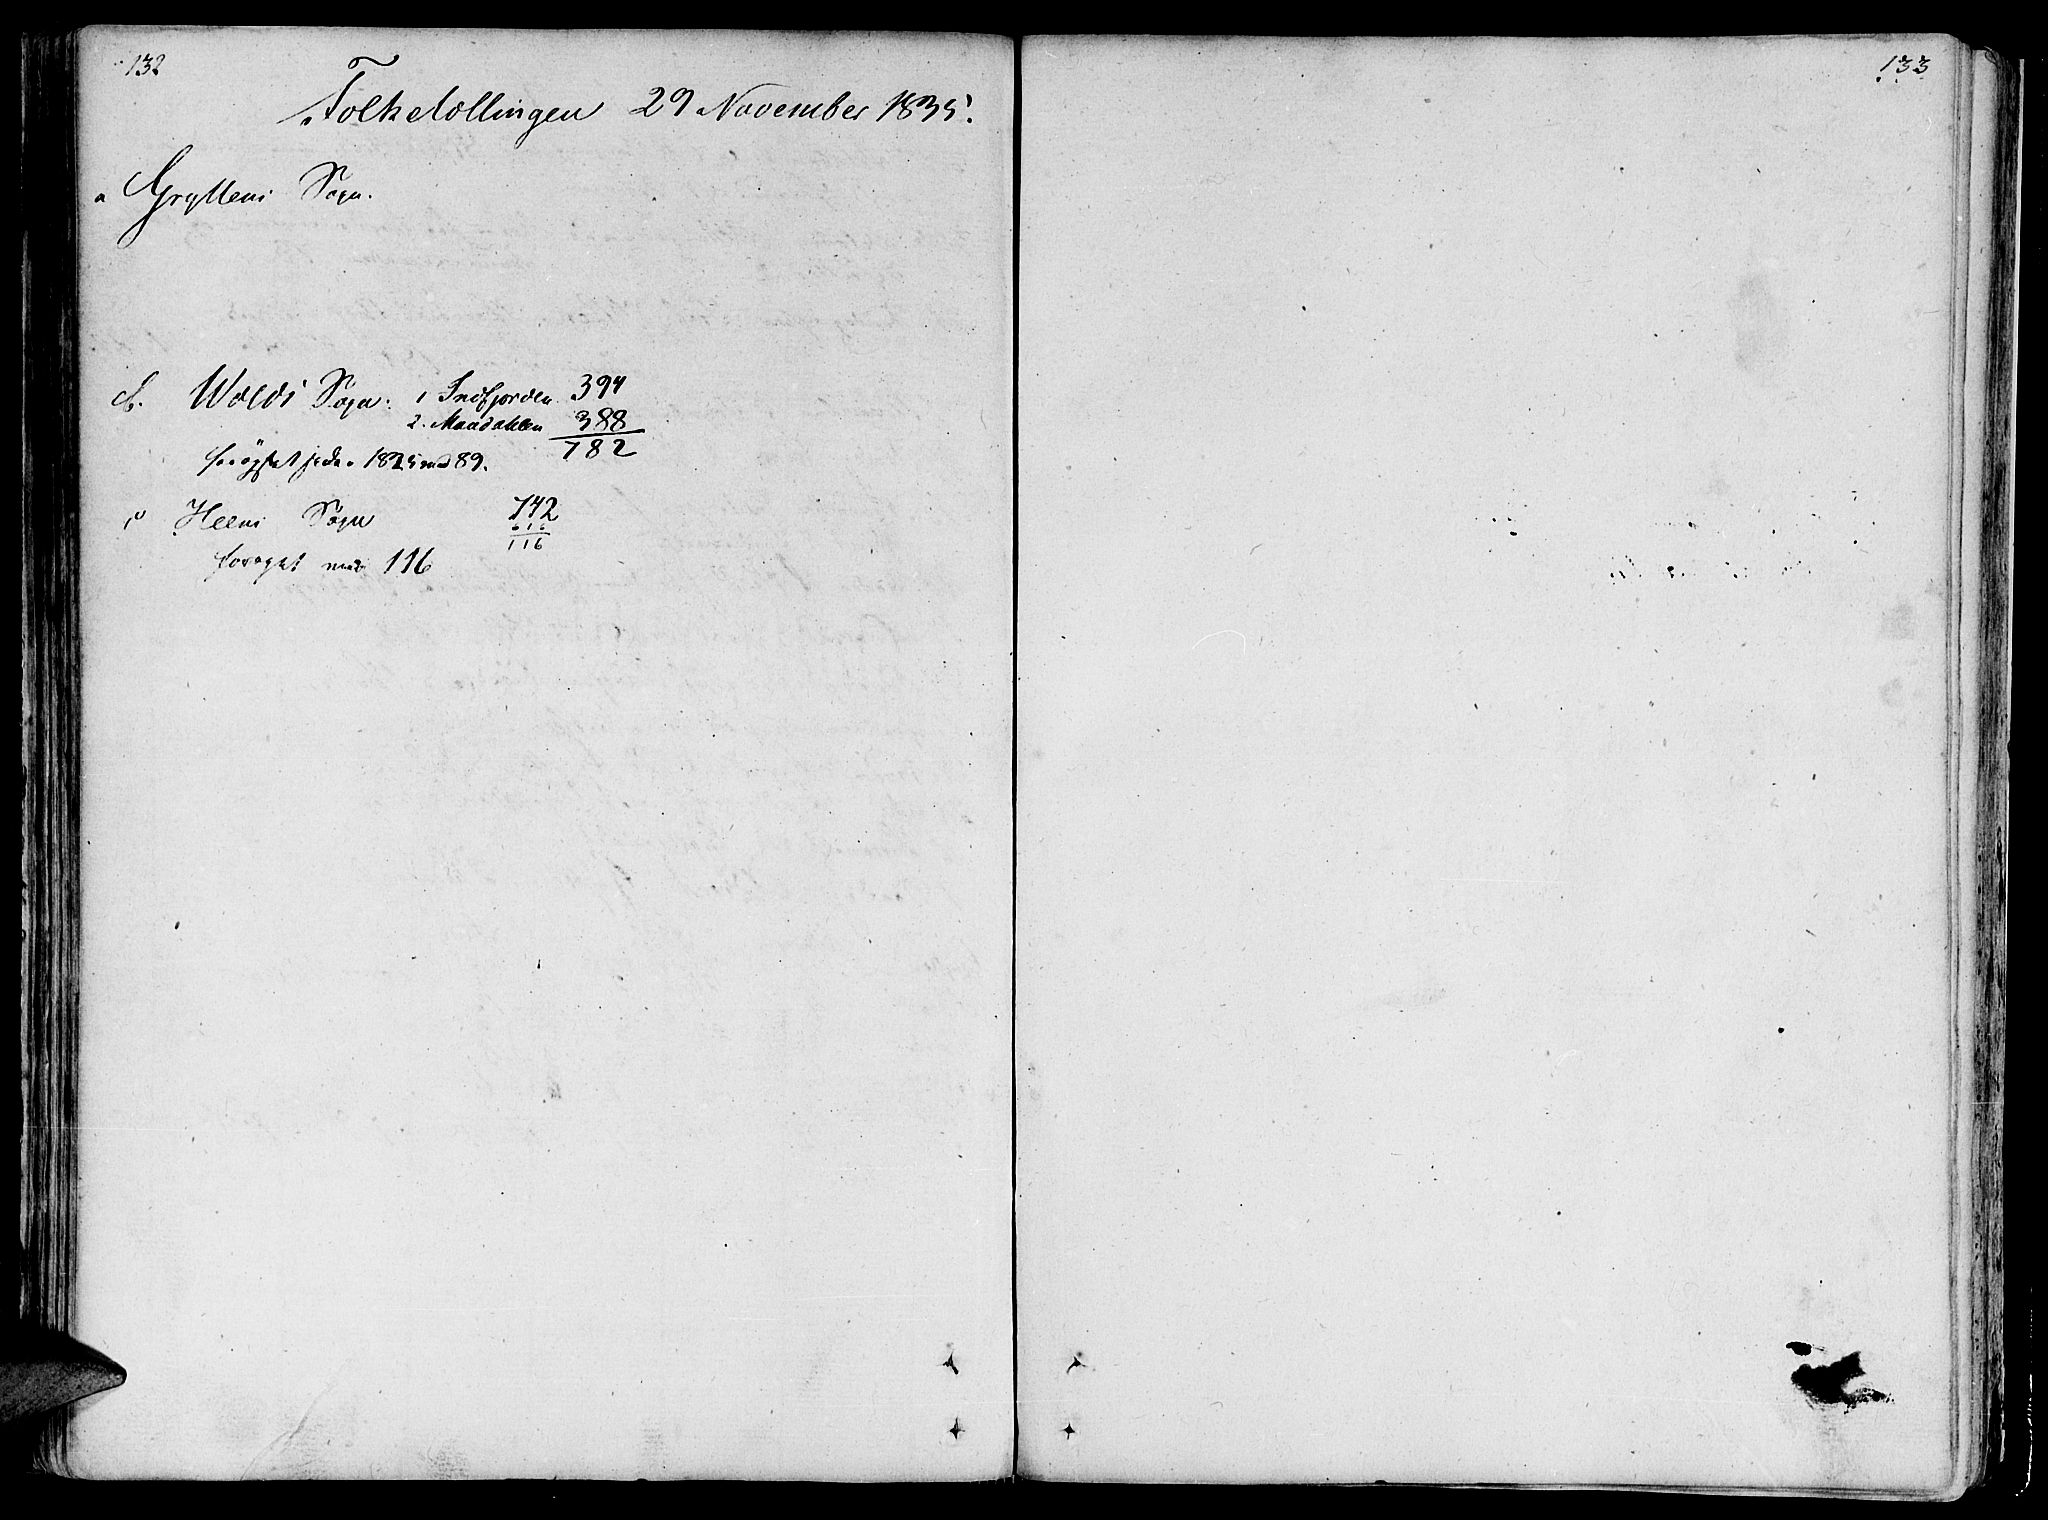 132
Folketællingen 29 November 1835.
a Gryttens Sogn.
b. Wolds Sogn. 1 Indfjorden 394
2. Maandahlen 388
782
forøgset siden 1825 med 89.
c Heens Sogn 742
616
116
forøget med 116
133